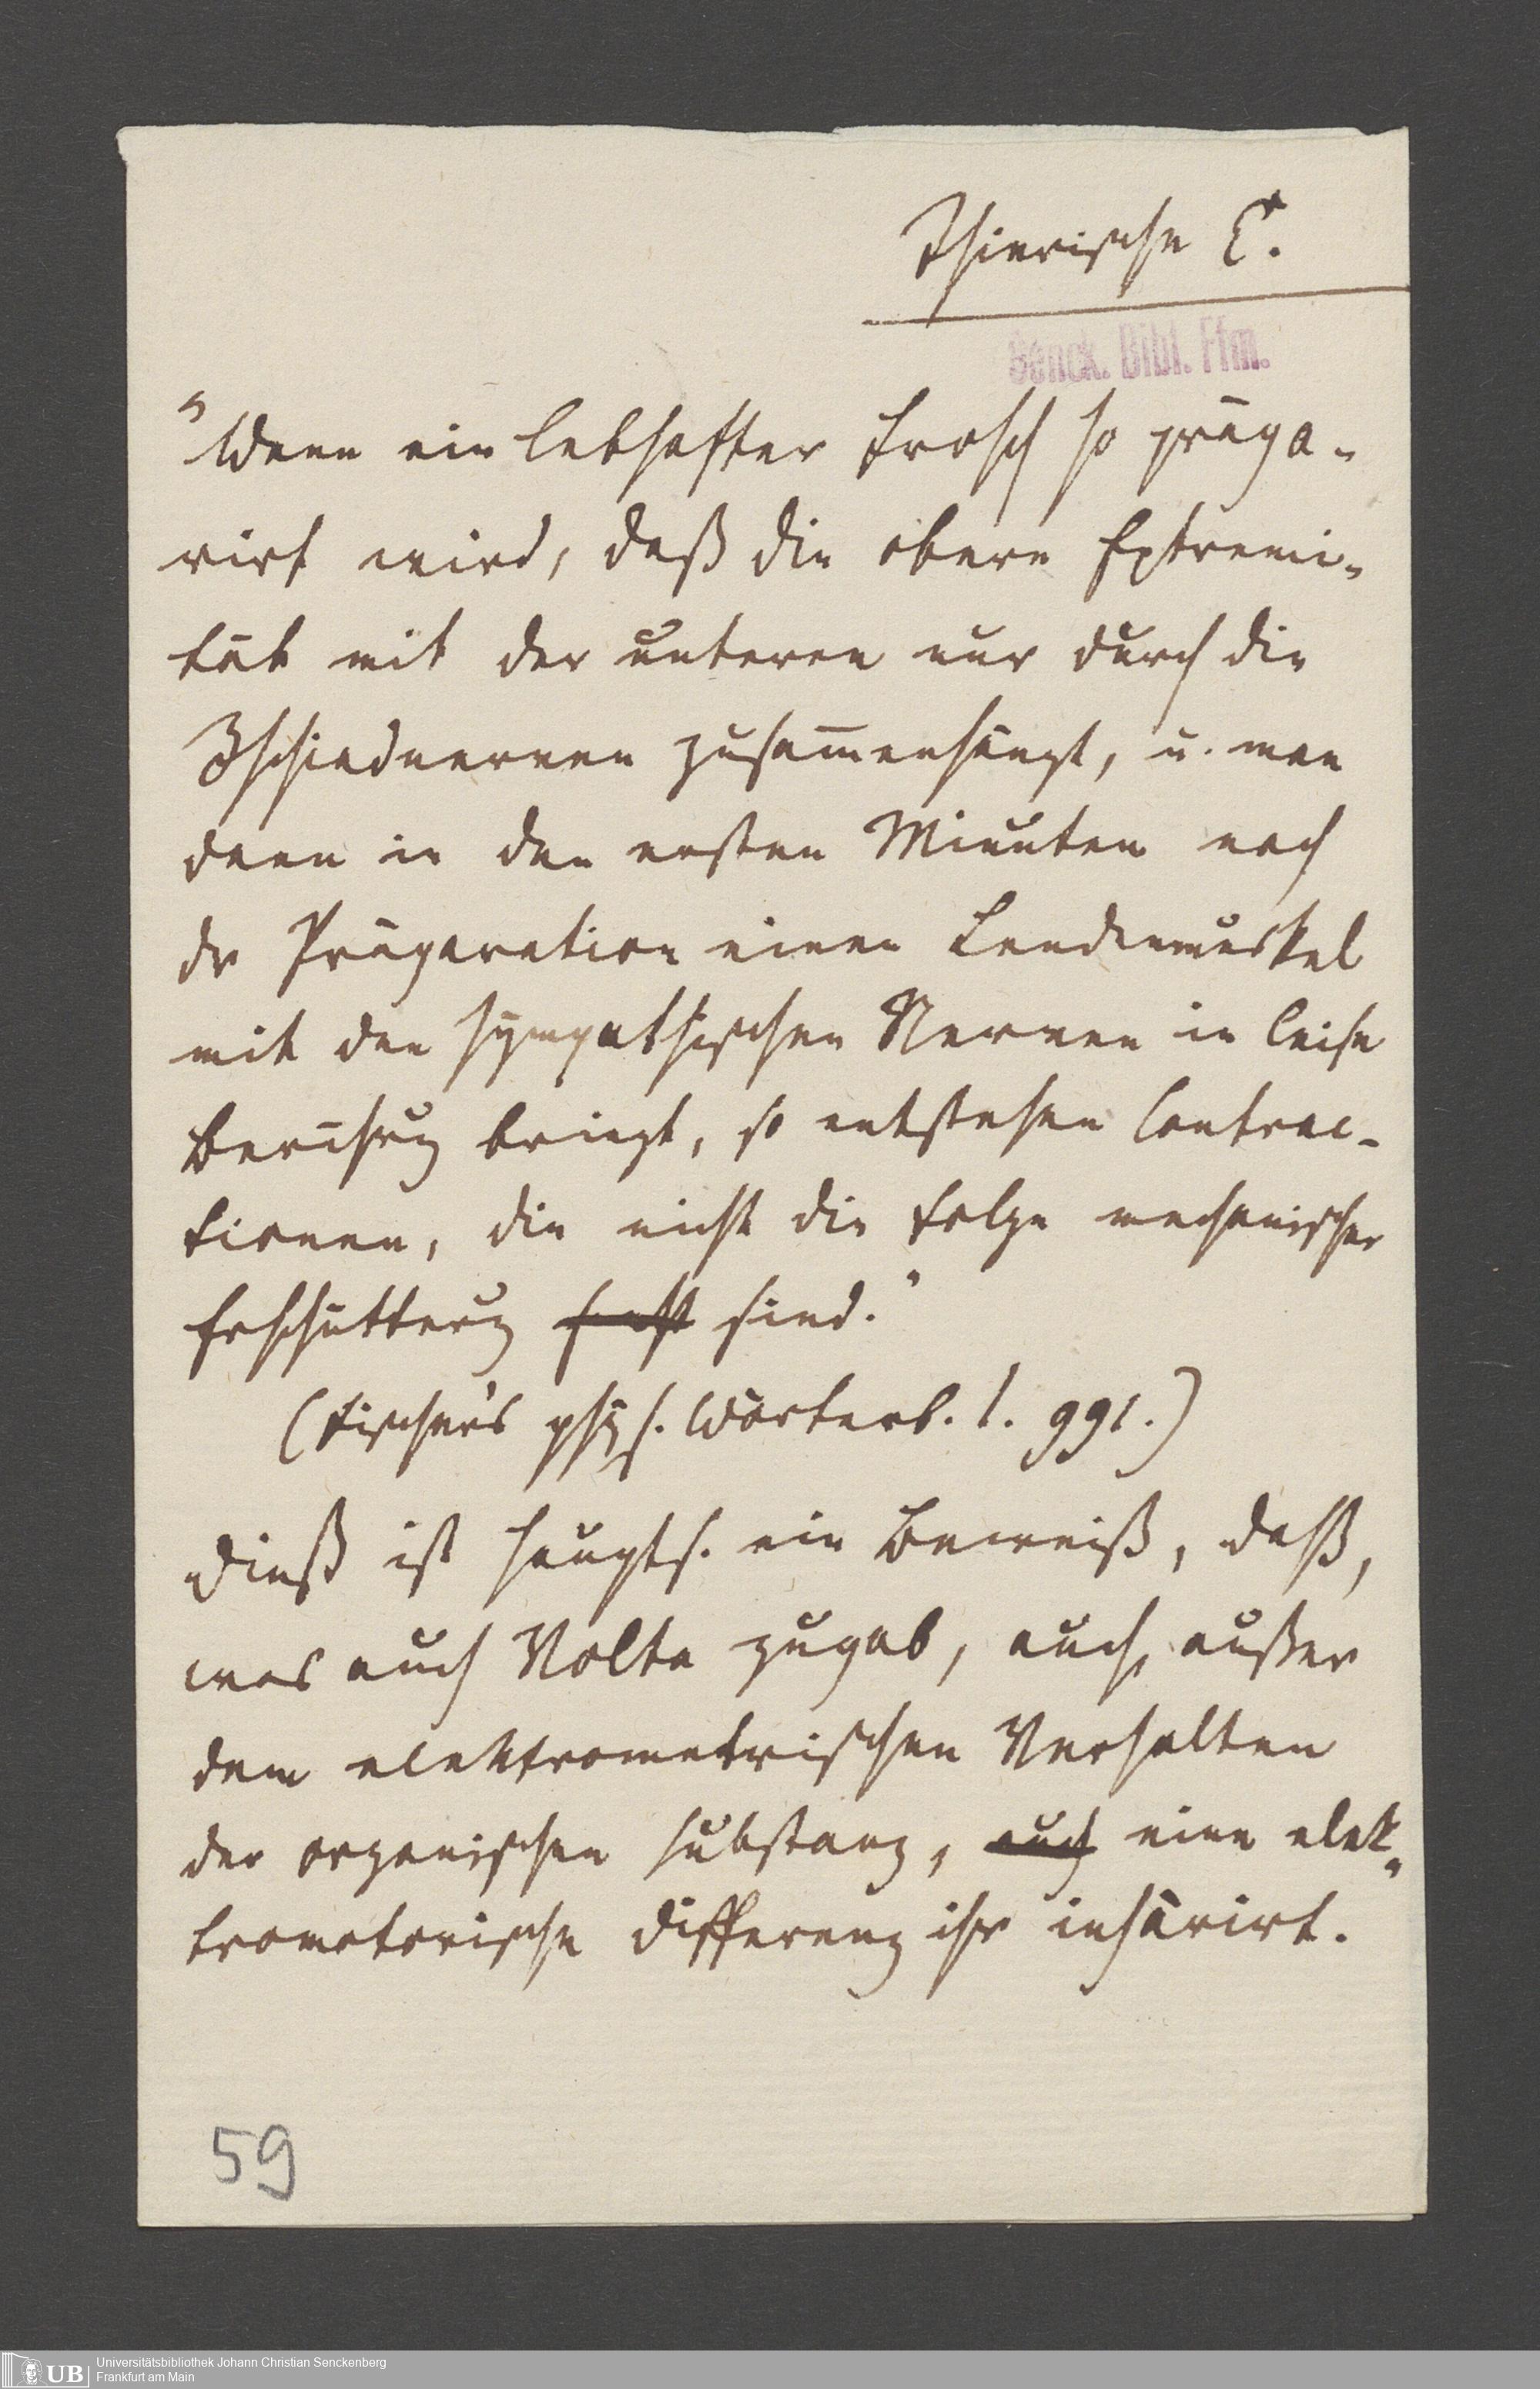 Thierische E.
Senck. Bibl. Ffm.
"Wenn ein lebhafter Frosch so präpa-
rirt wird, daß die obere Extremi-
tät mit der unteren nur durch die
Ischiadnerven zusammenhängt, u. man
dann in den ersten Minuten nach
der Präparation einen Lendenmuskel
mit den sympathischen Nerven in leise
Berührung bringt, so entstehen Contrac-
tionen, die nicht die Folge mechanischer
Erschütterung sind."
(Fischer's phys. Wörterb. 1. 991.)
Dieß ist haupts. ein Beweiß, daß,
was auch Volta zugab, auch, außer
dem elektrometrischen Verhalten
der organischen Substanz, auch eine elek-
tromotorische Differenz ihr inhärirt.
59
UB
Universitätsbibliothek Johann Christian Senckenberg
Frankfurt am Main